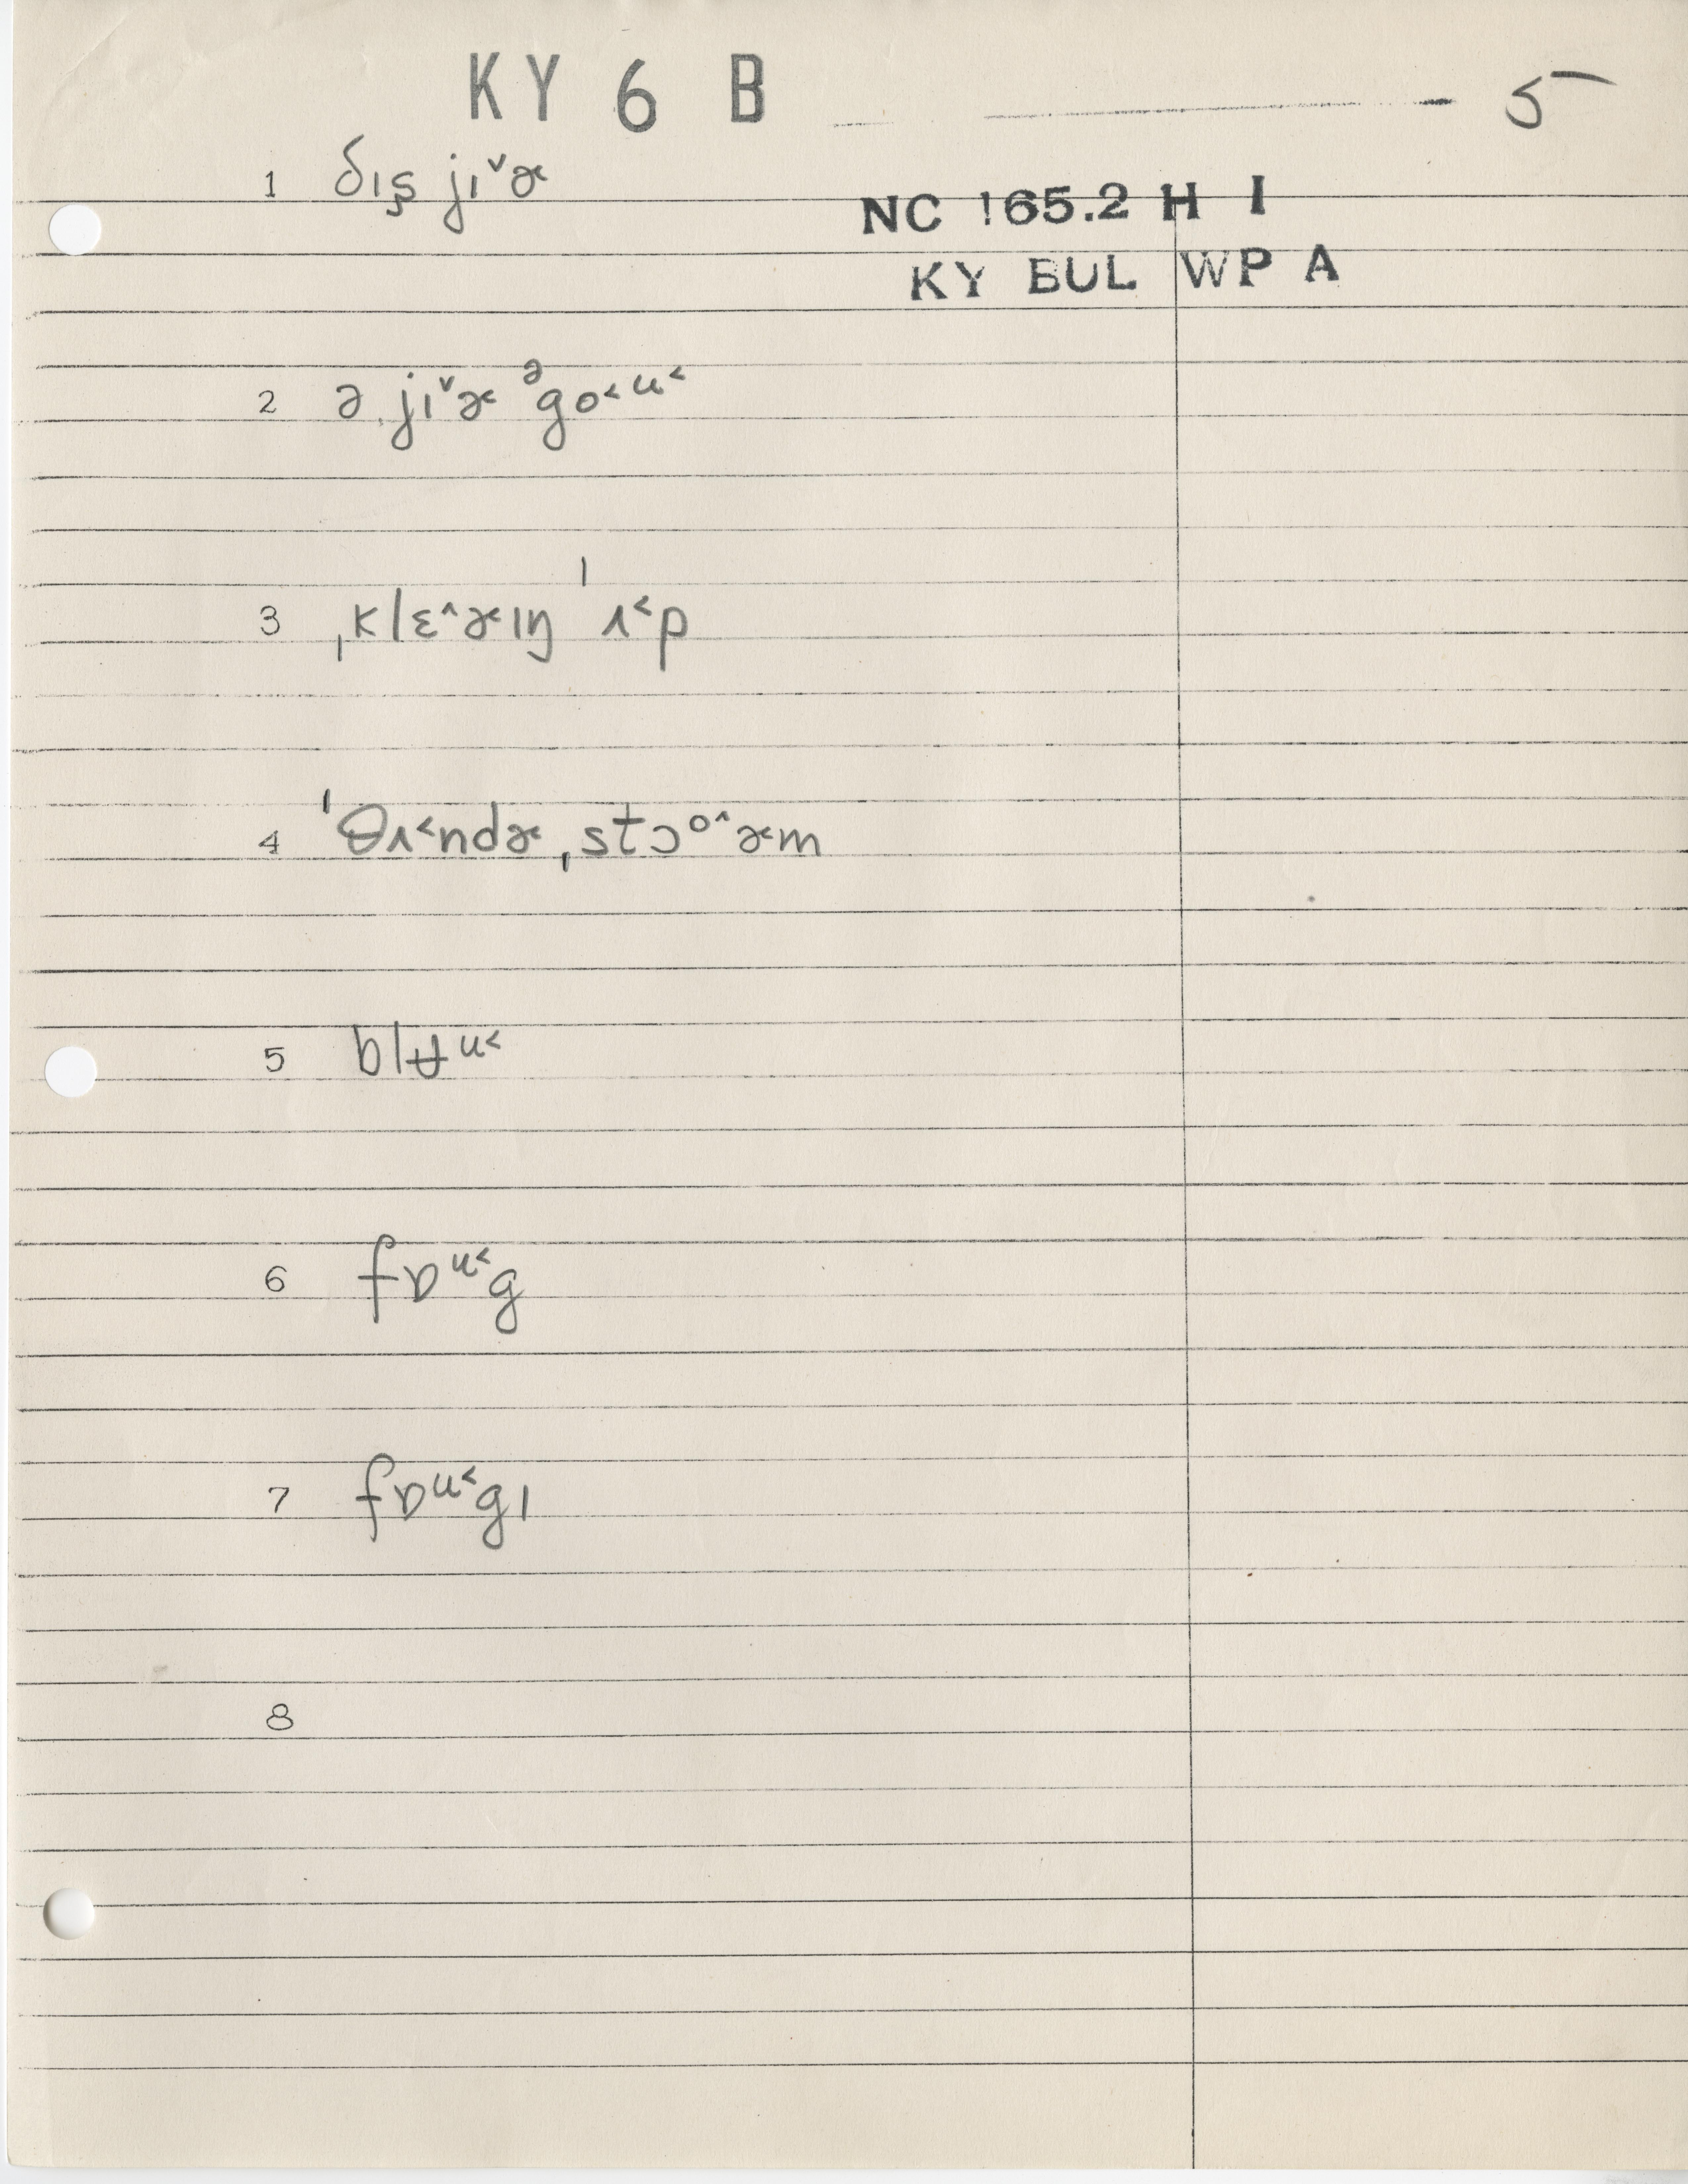 KY 6 B 5
1 ðɪʂ jɪ˅ɚ
NC !65.2 H I
KY BUL WP A
2 ə jɪ˅ɚ ᵊgo˂ᵘ˂
3 ˌklɛ˄ɚɪŋ ˈʌ˂p
4 ˈθʌ˂ndɚ ˌstɔᵒ˄ɚm
5 blʉᵘ˂
6 fɒᵘ˂g
7 fɒᵘ˂gɪ
8